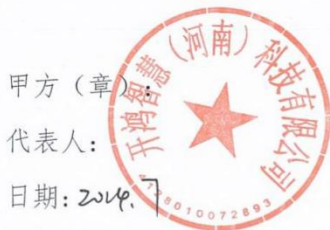 甲方（章）：
代表人：
日期：2024.7
开鸿智慧（河南）科技有限公司
4138010072893